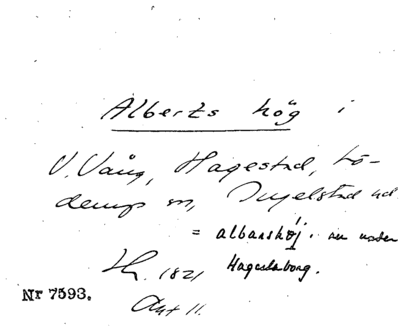 Alberts hög i
V. Vång, Hagestad, Lö-
derup sn, Ingelstad hd.
= albanshöj. nu under
Hagestaborg.
Lh. 1821
Akt 11.
Nr 7593.